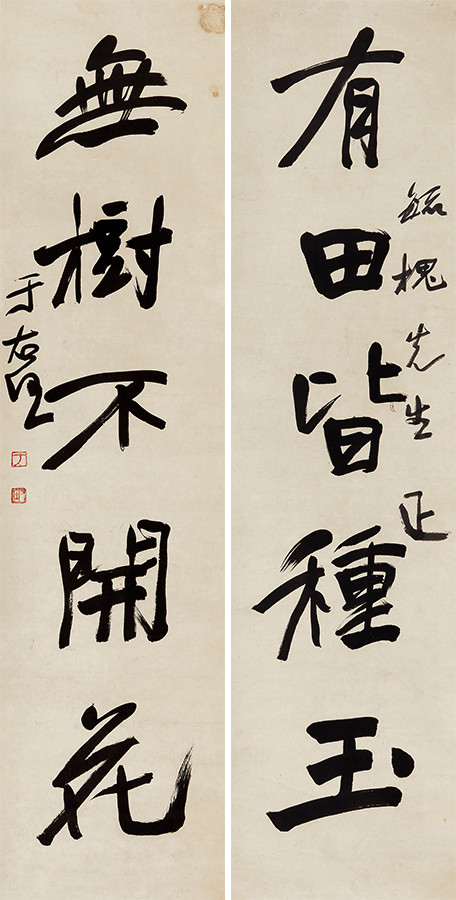 有田皆種玉
先生正
無樹不開花
于右任